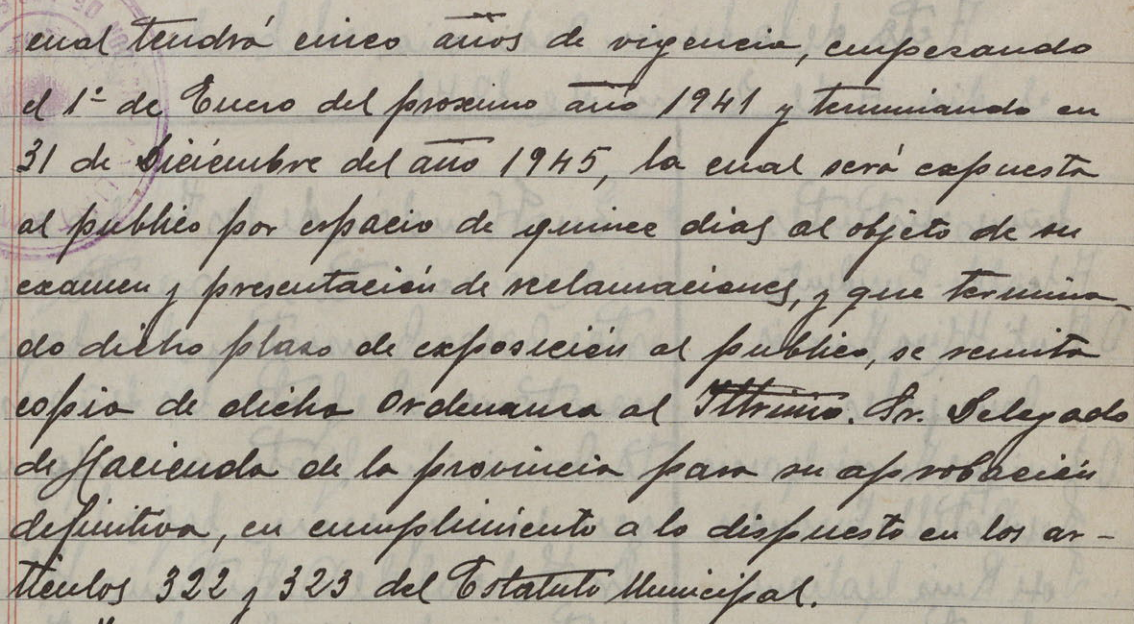 cual tendrá cinco años de vigencia, empezando
el 1º de Enero del proximo año 1941 y terminando en
31 de Diciembre del año 1945, la cual será expuesta
al publico por espacio de quince dias al objeto de su
examen y presentación de reclamaciones, y que termina-
do dicho plazo de exposición al publico, se remita
copia de dicha Ordenanza al Iltrmo. Sr. Delegado
de Hacienda de la provincia para su aprobación
definitiva, en cumplimiento a lo dispuesto en los ar-
tículos 322 y 323 del Estatuto Municipal.